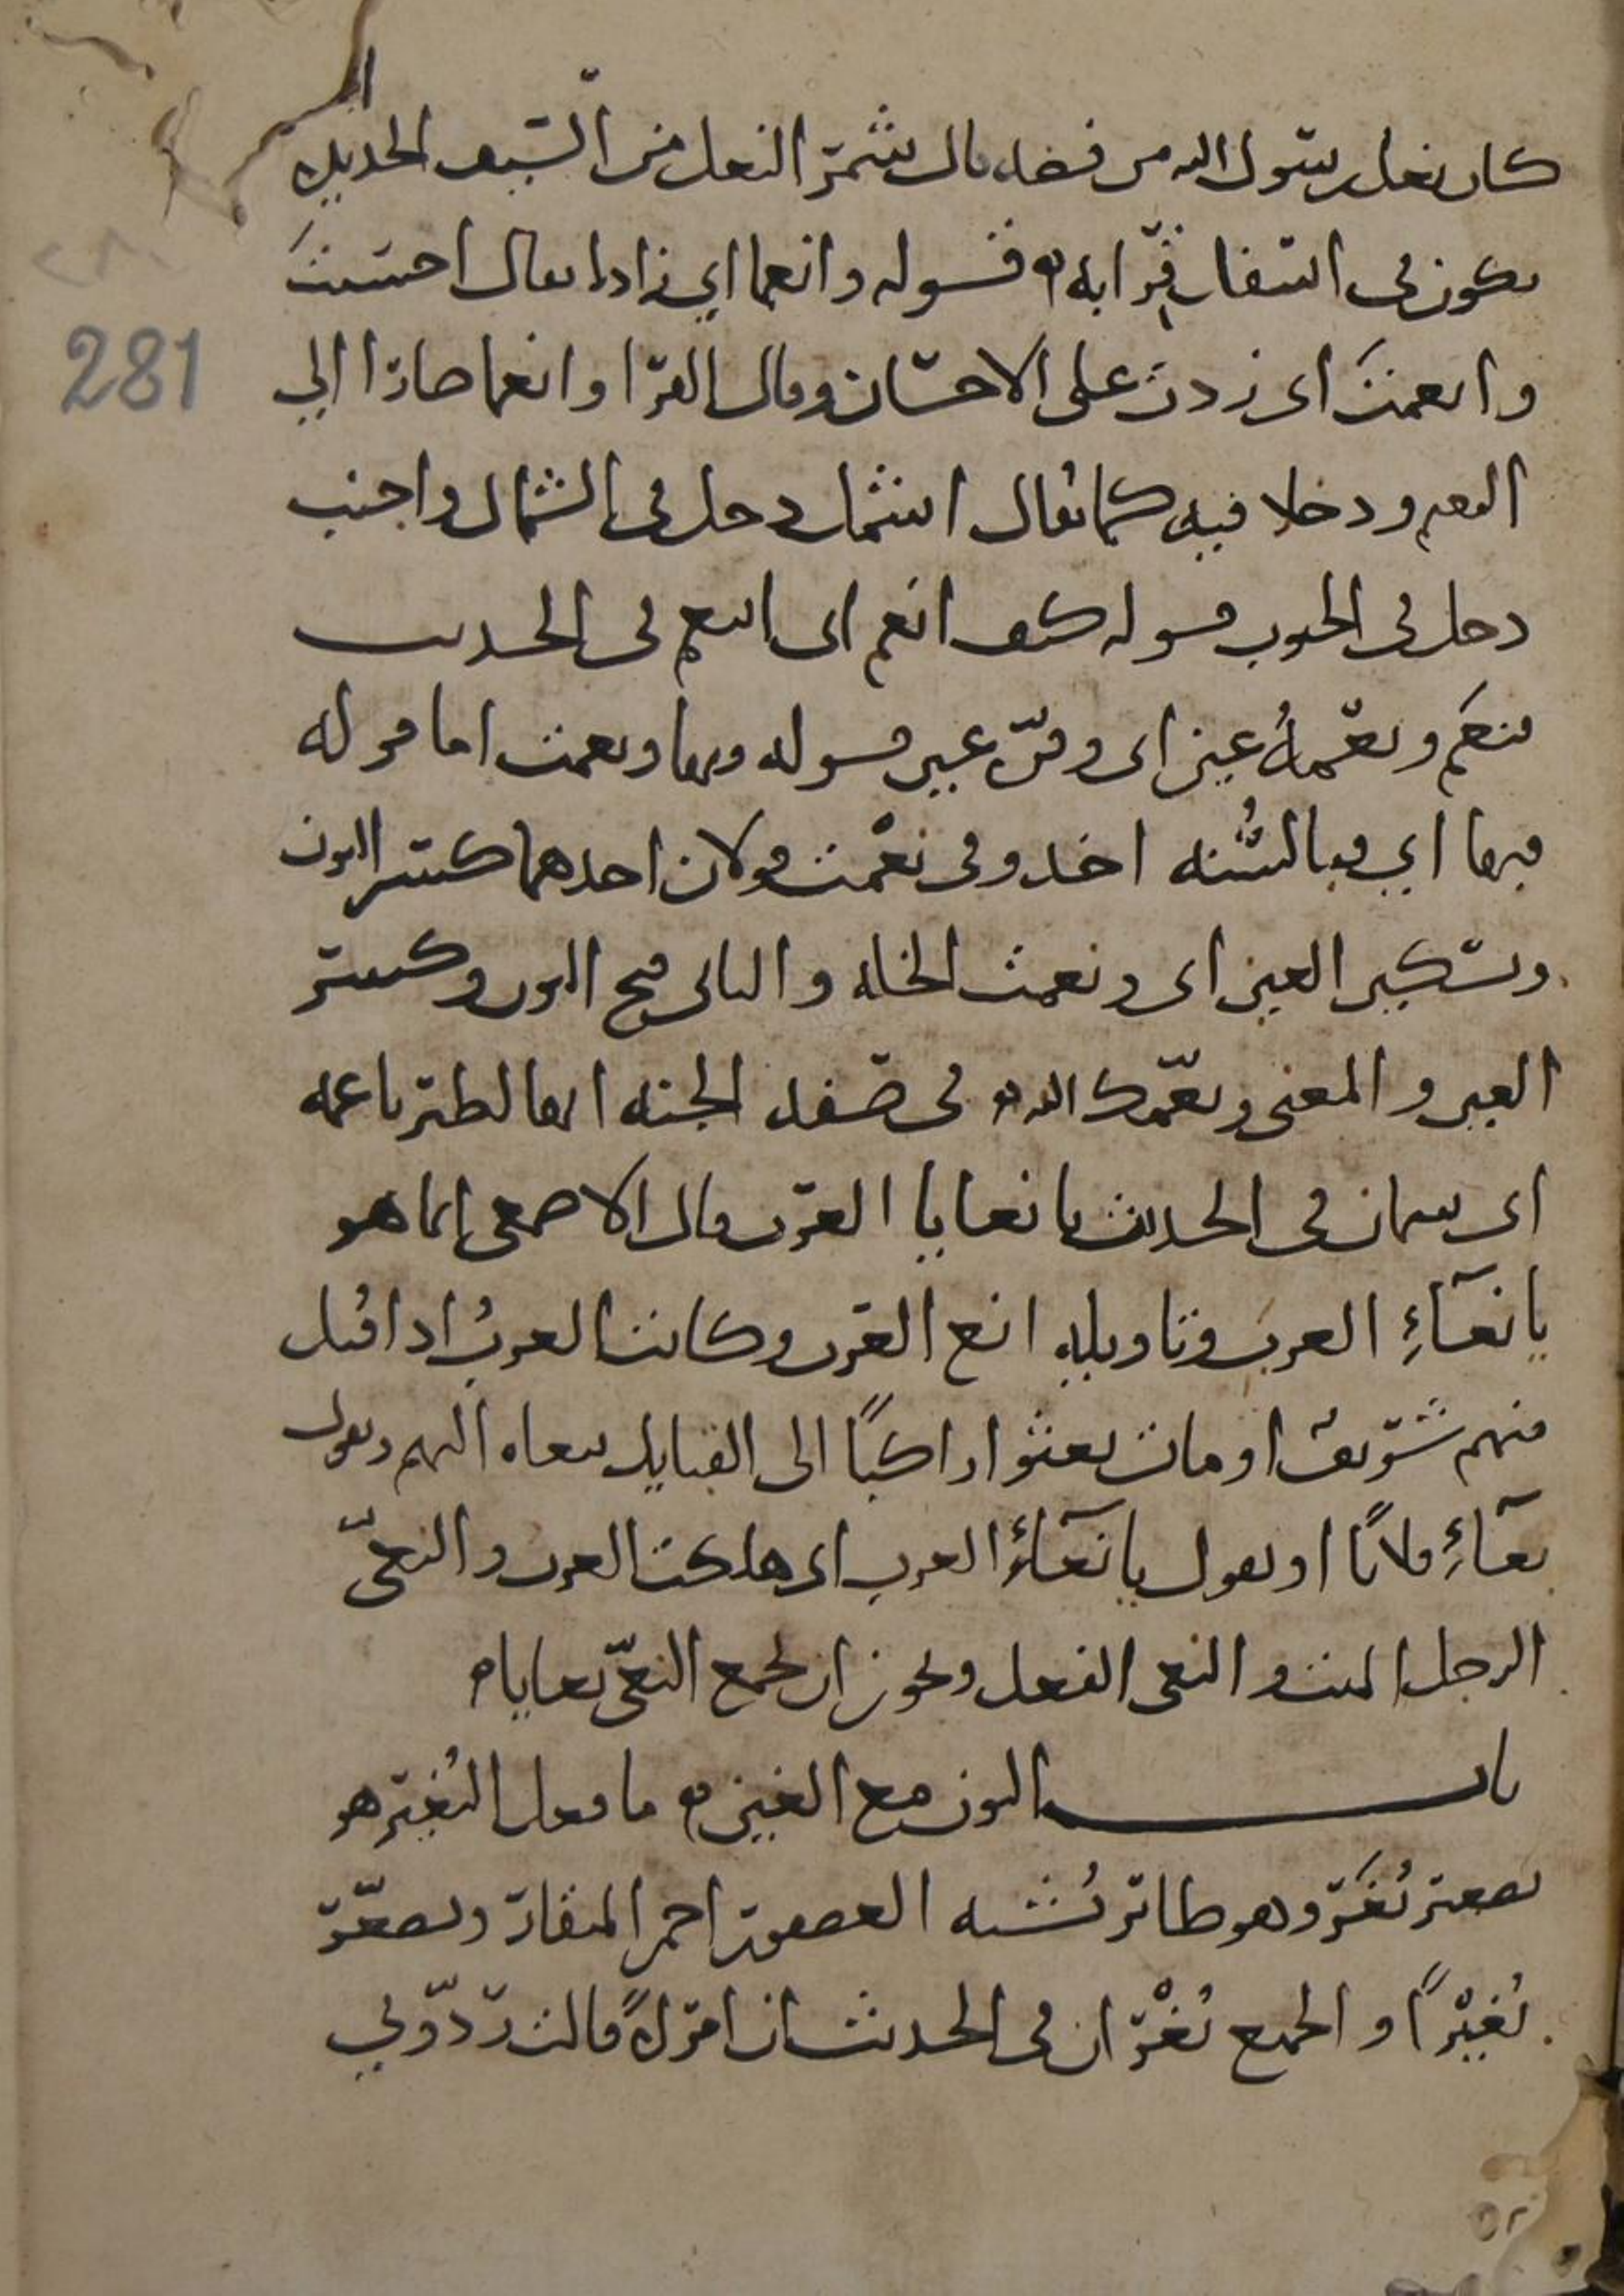 كان نعل رسول الله من فضه قال شمر النعل من السيف الحديده
تكون في اسفل قرابه قوله وانعما اي زادا يقال احسنت
وانعمت اي زدت على الاحسان وقال الفرا وانعما صارا الي
النعيم ودخلا فيه كما يقال اشمل دخل في الشمال واجنب
دخل في الجنوب قوله كيف انعم اى اتنعم في الحديث
فنعم ونعمة عين اى وقرة عين قوله فبها ونعمت اما قوله
فبها اي فبالسنه اخذ وفي نعمت قولان احدهما كسر النون
وتسكين العين اى ونعمت الخله والثاني فتح النون وكسر
العين والمعنى ونعمك الله في صفه الجنه انها لطير ناعمه
اى سمان في الحديث يا نعايا العرب قال الاصمعي انما هو
يا نعاء العرب وتاويله انع العرب وكانت العرب اذا قتل
منهم شريف او مات بعثوا راكبا الى القبايل ينعاه اليهم ويقول
نعاء فلانا او يقول يا نعاء العرب اى هلكت العرب والنعي
الرجل الميت والنعي الفعل ويجوز ان يجمع النعي نعايا
باب النون مع الغين ما فعل النغير هو
تصغير نغر وهو طائر يشبه العصفور احمر المنقار وتصغر
نغيرا والجمع نغران في الحديث ان امراة قالت ردوني
281